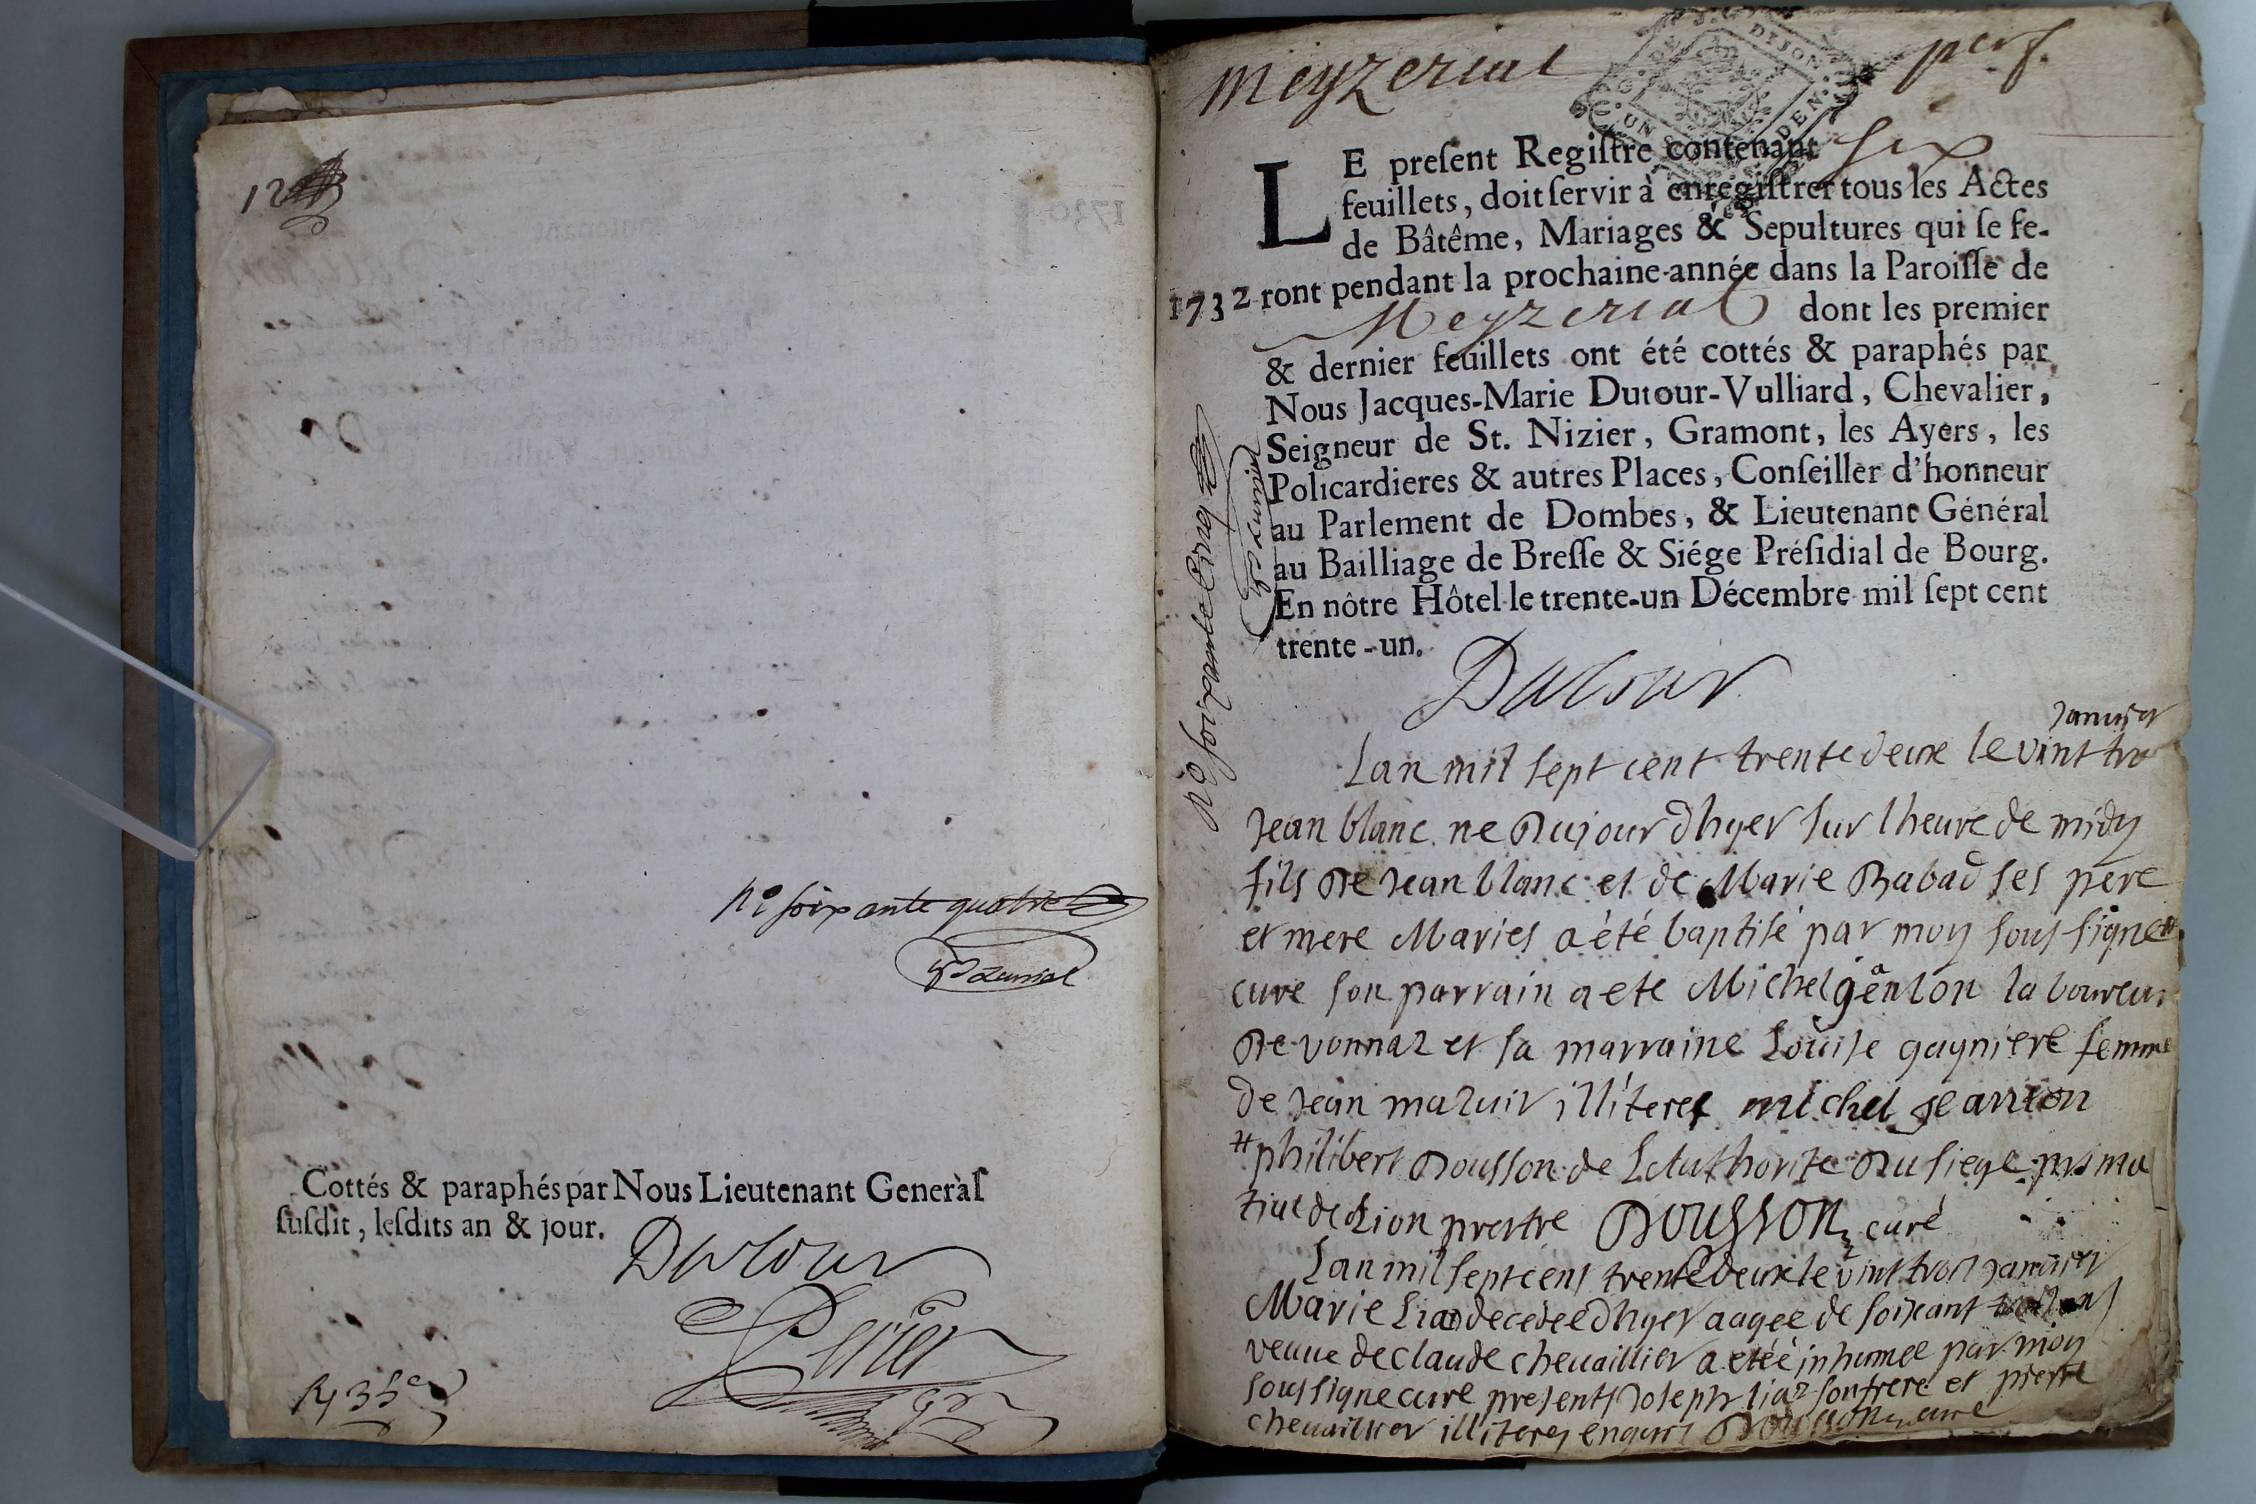 12
n° soixante quatre
Cottés & paraphés par Nous Lieutenant Generàl
susdit, lesdits an & jour.
Dutour
Perier
R 35s
meyzeriat perf.
DIJON
LE present Registre contenant six
feuillets, doit servir à enregistrer tous les Actes
de Bâtême, Mariages & Sepultures qui se fe-
1732 ront pendant la prochaine année dans la Paroisse de
Meyzeriat dont les premier
& dernier feuillets ont été cottés & paraphés par
Nous Jacques-Marie Dutour-Vulliard, Chevalier,
Seigneur de St. Nizier, Gramont, les Ayers, les
Policardieres & autres Places, Conseiller d'honneur
au Parlement de Dombes, & Lieutenant Général
au Bailliage de Bresse & Siége Présidial de Bourg.
En nôtre Hôtel le trente-un Décembre mil sept cent
trente-un.
Dutour
n° soixante cinq
janvier
Lan mil sept cent trente deux le vint tro
Jean blanc ne dujourdhyer sur lheure de midy
fils de Jean blanc et de Marie Rabad ses pere
et mere Maries a été baptisé par moy sous signe #
cure son parrain a ete Michel géanton laboureur
de vonnaz et sa marraine Loüise gayniere femme
de Jean mazuir illiteres michel jeanton
# philibert Dousson de Lauthorite du siege prima
tial de Lion prestre Dousson curé
Lan mil sept cent trente deux le vint trois janvier
Marie Liaz decedee dhyer aagee de soixant ans
veuue de claude cheuaillier a eteé inhumee par moy
soussigne cure presents Joseph liaz son frere et pierre
cheuaillier illiteres enquis Dousson cure